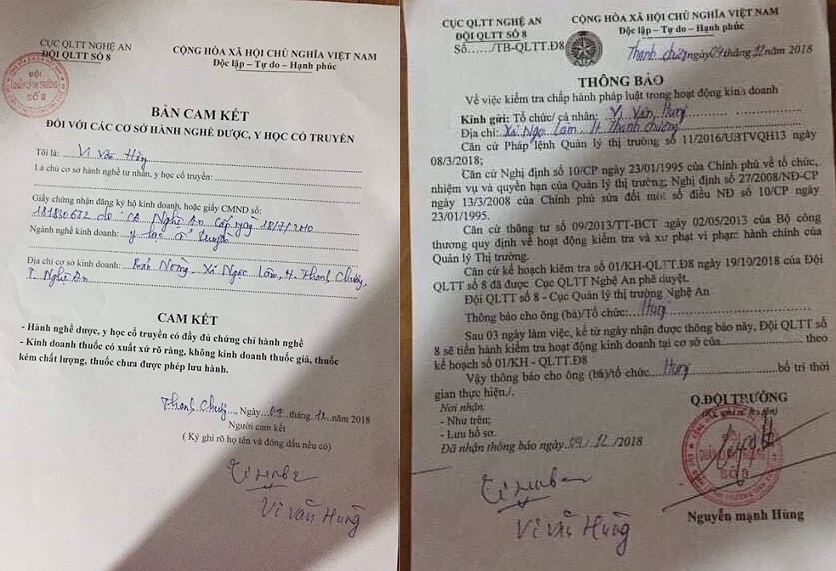 CỤC QLTT NGHỆ AN
ĐỘI QLTT SỐ 8
CỘNG HÒA XÃ HỘI CHỦ NGHĨA VIỆT NAM
Độc lập - Tự do - Hạnh phúc
ĐỘI
QUẢN LÝ THỊ TRƯỜNG
SỐ 8
BẢN CAM KẾT
ĐỐI VỚI CÁC CƠ SỞ HÀNH NGHỀ DƯỢC, Y HỌC CỔ TRUYỀN
Tôi là: Vi Văn Hùng
Là chủ cơ sở hành nghề tư nhân, y học cổ truyền:
Giấy chứng nhận đăng ký hộ kinh doanh, hoặc giấy CMND số:
181830672 do CA Nghệ An cấp ngày 18/7/2010
Ngành nghề kinh doanh: y học cổ truyền
Địa chỉ cơ sở kinh doanh: Bản Nòng, Xã Ngọc Lâm, H. Thanh Chương,
T. Nghệ An
CAM KẾT
- Hành nghề dược, y học cổ truyền có đầy đủ chứng chỉ hành nghề
- Kinh doanh thuốc có xuất xứ rõ ràng, không kinh doanh thuốc giả, thuốc
kém chất lượng, thuốc chưa được phép lưu hành.
Thanh Chương, Ngày 09 tháng 12 năm 2018
Người cam kết
( Ký ghi rõ họ tên và đóng dấu nếu có)
Vi Văn Hùng
CỤC QLTT NGHỆ AN
ĐỘI QLTT SỐ 8
Số....../TB-QLTT.Đ8
CỘNG HÒA XÃ HỘI CHỦ NGHĨA VIỆT NAM
Độc lập - Tự do - Hạnh phúc
Thanh Chương ngày 09 tháng 12 năm 2018
THÔNG BÁO
Về việc kiểm tra chấp hành pháp luật trong hoạt động kinh doanh
Kính gửi: Tổ chức/ cá nhân: Vi Văn Hùng
Địa chỉ: Xã Ngọc Lâm, H Thanh Chương
Căn cứ Pháp lệnh Quản lý thị trường số 11/2016/UBTVQH13 ngày
08/3/2018;
Căn cứ Nghị định số 10/CP ngày 23/01/1995 của Chính phủ về tổ chức,
nhiệm vụ và quyền hạn của Quản lý thị trường; Nghị định số 27/2008/NĐ-CP
ngày 13/3/2008 của Chính phủ sửa đổi một số điều NĐ số 10/CP ngày
23/01/1995.
Căn cứ thông tư số 09/2013/TT-BCT ngày 02/05/2013 của Bộ công
thương quy định về hoạt động kiểm tra và xử phạt vi phạm hành chính của
Quản lý Thị trường.
Căn cứ kế hoạch kiểm tra số 01/KH-QLTT.Đ8 ngày 19/10/2018 của Đội
QLTT số 8 đã được Cục QLTT Nghệ An phê duyệt.
Đội QLTT số 8 - Cục Quản lý thị trường Nghệ An
Thông báo cho ông (bà)/Tổ chức: Hùng
Sau 03 ngày làm việc, kể từ ngày nhận được thông báo này, Đội QLTT số
8 sẽ tiến hành kiểm tra hoạt động kinh doanh tại cơ sở của.................... theo
kế hoạch số 01/KH - QLTT.Đ8
Vậy thông báo cho ông (bà)/tổ chức Hùng bố trí thời
gian thực hiện./.
Nơi nhận:
- Như trên;
- Lưu hồ sơ.
Đã nhận thông báo ngày 09/12/2018
Q.ĐỘI TRƯỞNG
ĐỘI
QUẢN LÝ THỊ TRƯỜNG
SỐ 8
Vi Văn Hùng
Nguyễn mạnh Hùng